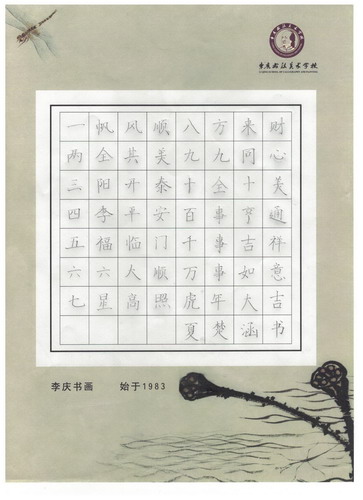 李庆书法美术学校
一帆风顺八方来财
两全其美九九同心
三阳开泰十全十美
四季平安百事亨通
五福临门千事吉祥
六六大顺万事如意
七星高照虎年大吉
夏楚涵书
李庆书画 始于1983